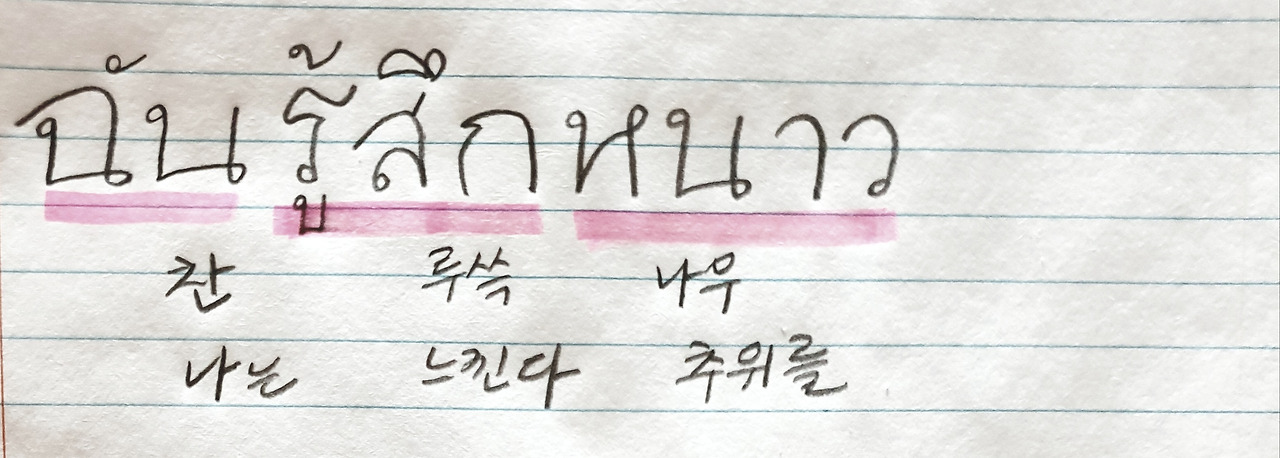 ฉันรู้สึกหนาว
찬 루쓱 나우
나는 느낀다 추위를